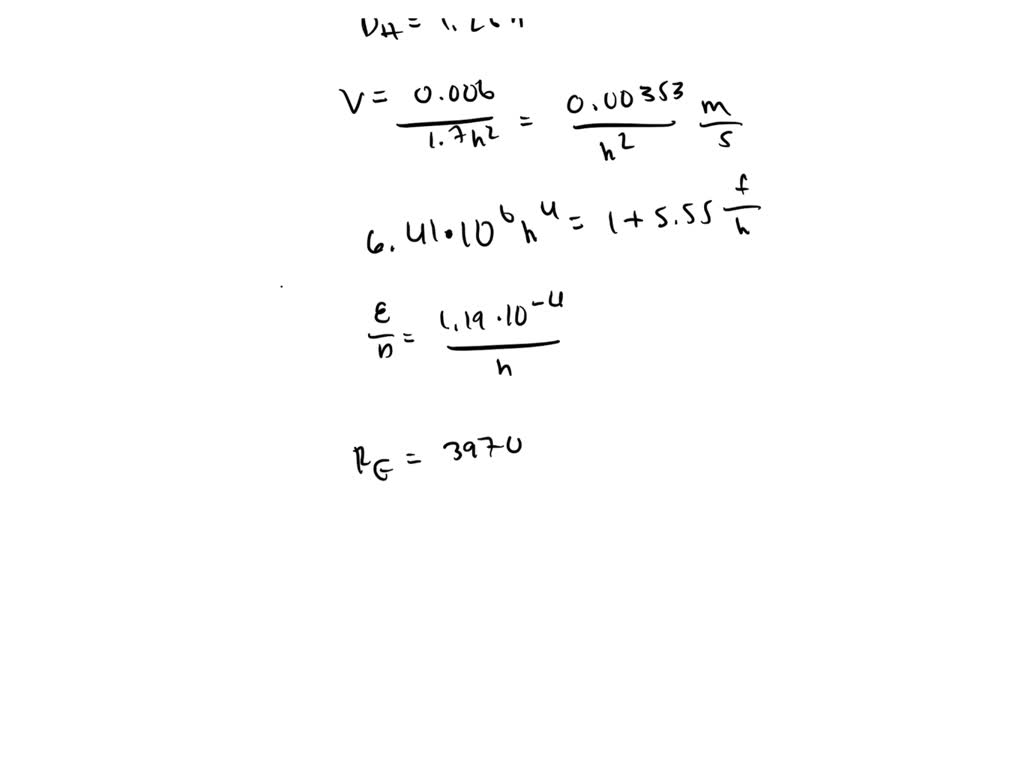 D_H =
V = 0.006 / 1.7h² = 0.00353 / h² m/s
6.41·10⁶h⁴ = 1 + 5.55 f/h
ε/D = 1.19·10⁻⁴ / h
R_E = 3970